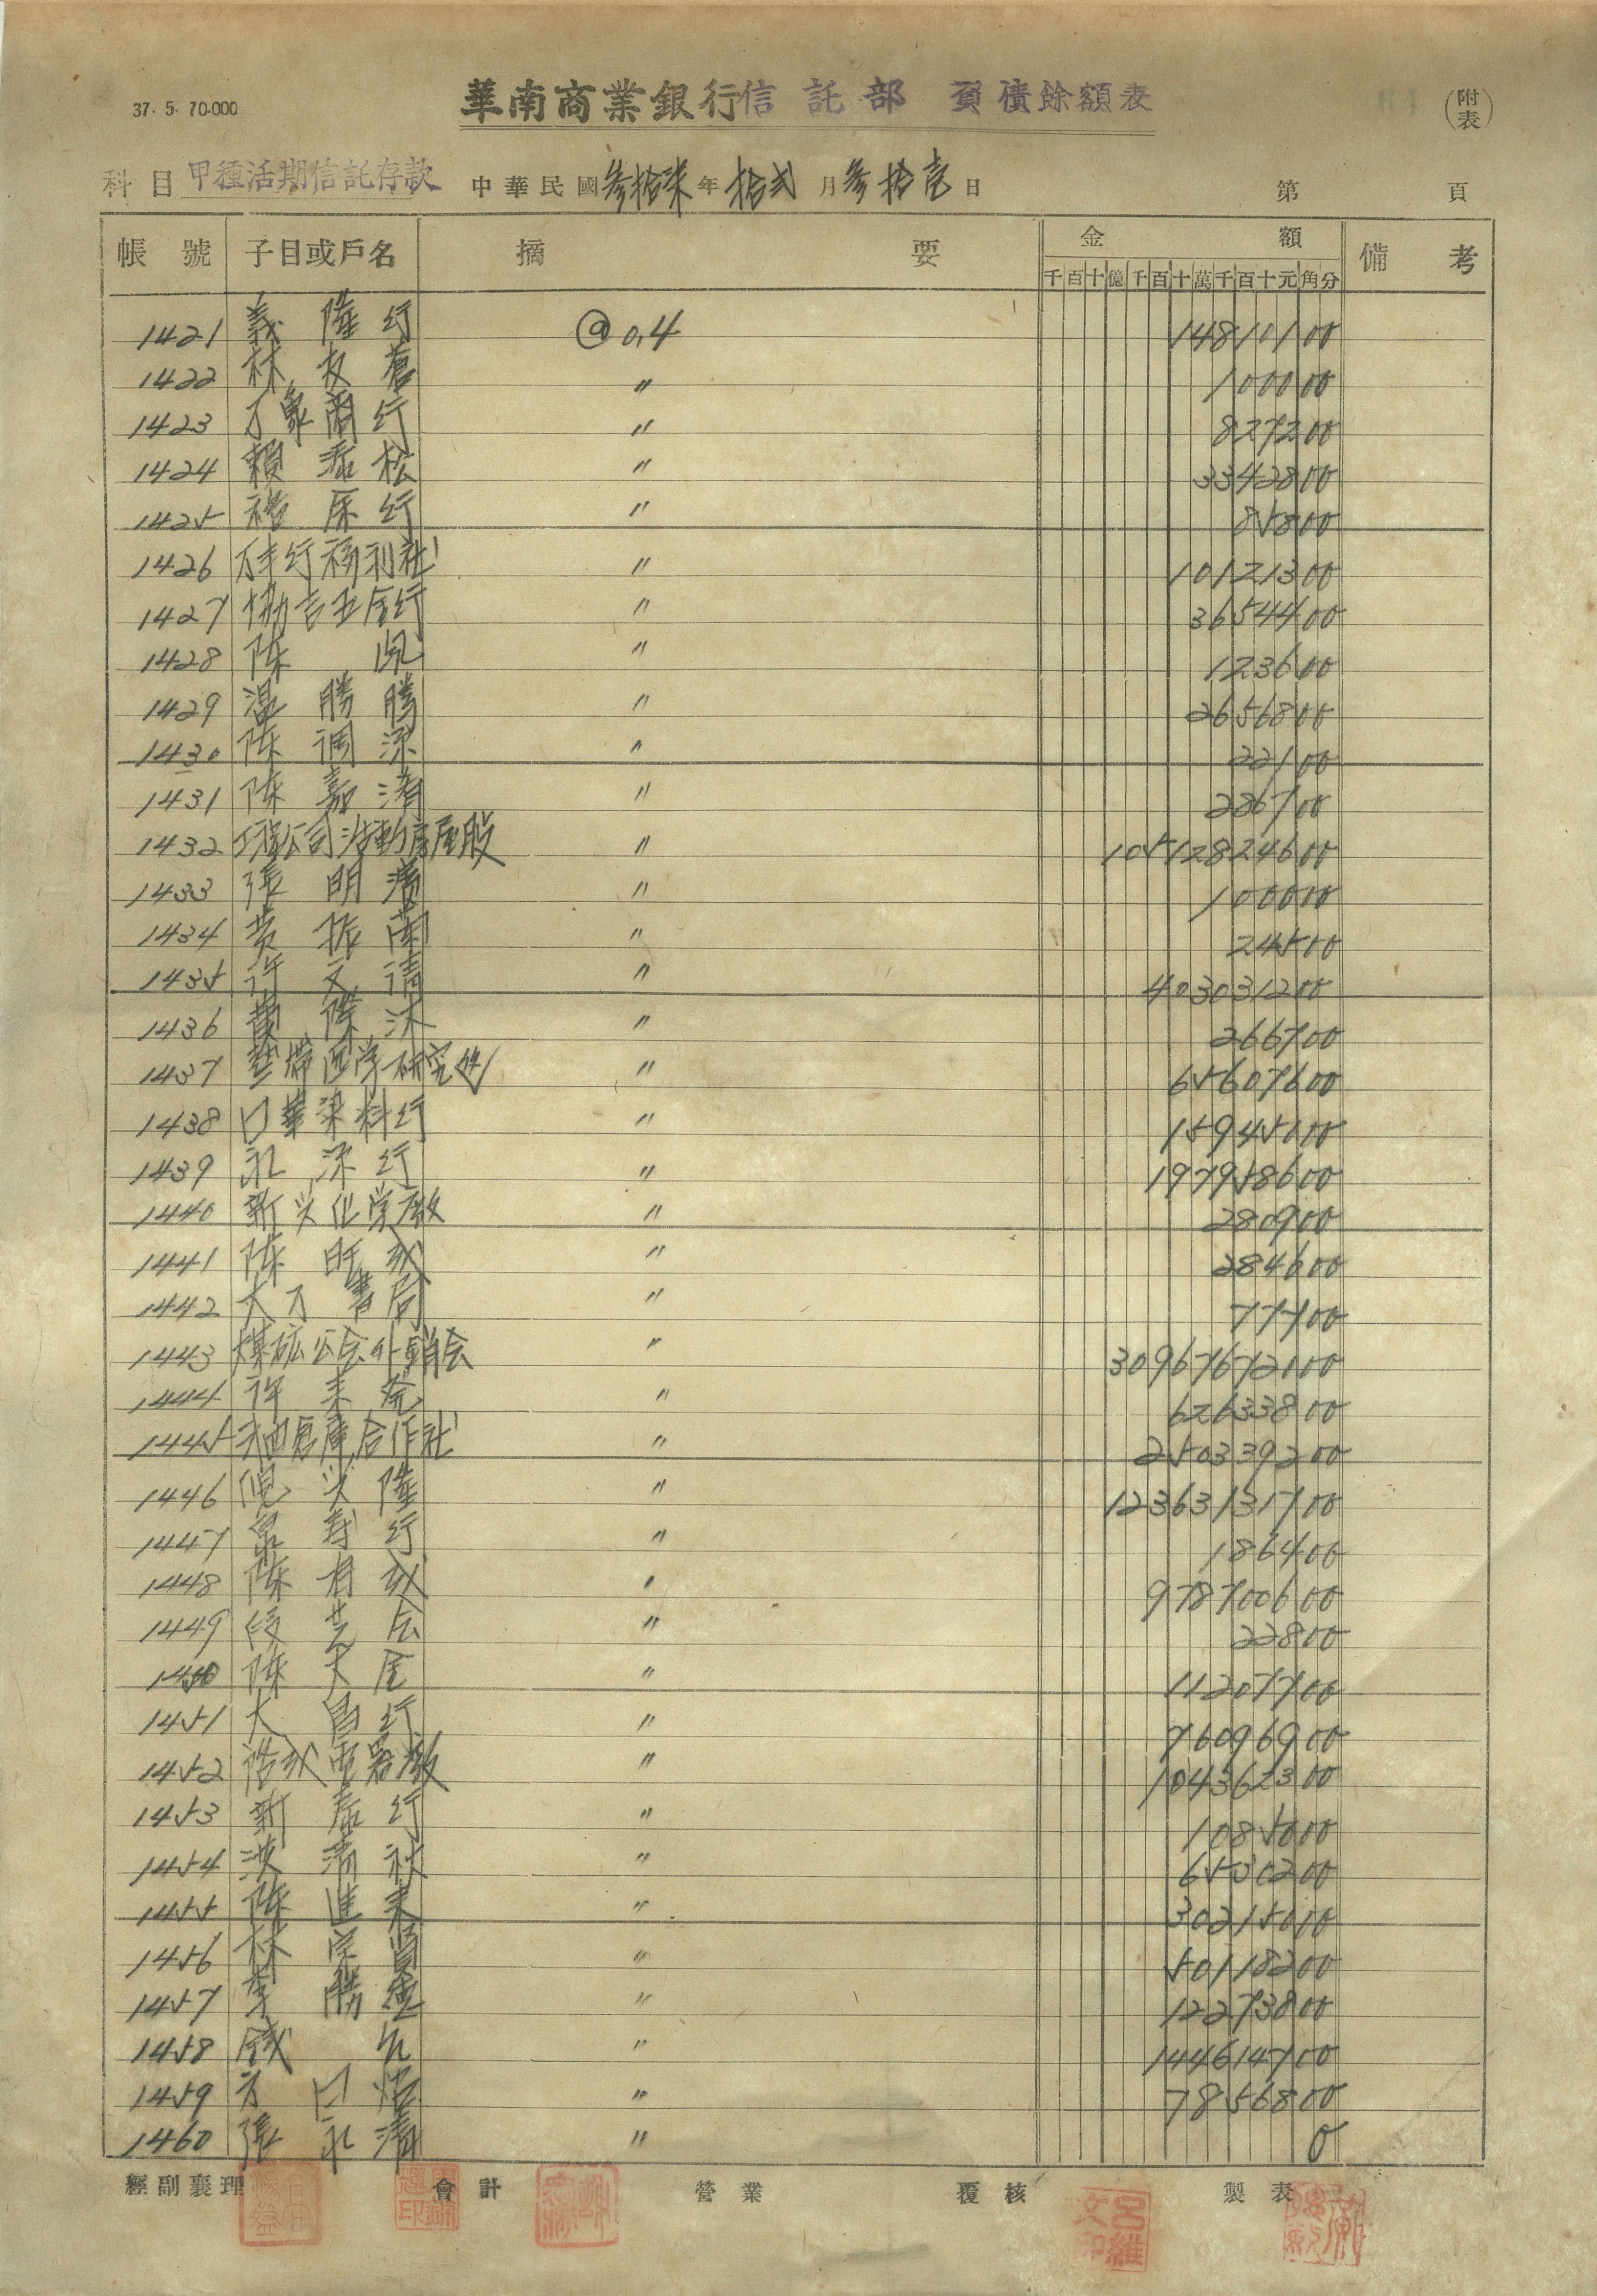 37. 5. 70.000
華南商業銀行信託部 負債餘額表
(附表)
科目 甲種活期信託存款 中華民國參拾柒年拾弍月參拾壹日 第 頁
帳號 子目或戶名 摘要 金額 備考
千百十億千百十萬千百十元角分
1421 義陸行 @0.4 148101 00
1422 林友蒼 〃 1000 00
1423 万象商行 〃 8272 00
1424 賴添松 〃 33428 00
1425 裕原行 〃 858 00
1426 行福利社 〃 101213 00
1427 協吉五金行 〃 36544 00
1428 陈 〃 1236 00
1429 温勝騰 〃 26568 00
1430 陈深 〃 221 00
1431 陈嘉清 〃 2867 00
1432 工程公司活動房屋股 〃 105128246 00
1433 張明 〃 10000 00
1434 黄振蘭 〃 245 00
1435 許文請 〃 4030312 00
1436 黄傑沐 〃 2667 00
1437 熱帶医学研究 〃 656076 00
1438 口華染料行 〃 159450 00
1439 永深行 〃 1979586 00
1440 新兴化学廠 〃 2809 00
1441 陈旺成 〃 2846 00
1442 大方書局 〃 777 00
1443 煤矿公会外銷会 〃 309676721 00
1444 許来発 〃 626338 00
1445 油倉庫合作社 〃 2503392 00
1446 倪兴陸 〃 123631317 00
1447 泉封行 〃 1864 00
1448 陈有成 〃 9787006 00
1449 〃 228 00
1450 陈天金 〃 112077 00
1451 大昌行 〃 760969 00
1452 浩成電器廠 〃 1043623 00
1453 新泰行 〃 10850 00
1454 洪清秋 〃 65302 00
1455 陈進来 〃 302150 00
1456 林宗賢 〃 501182 00
1457 李勝 〃 122738 00
1458 〃 1446147 00
1459 方口 〃 78568 00
1460 張永清 〃 0
經副襄理 會計 營業 覆核 製表
呂維文印